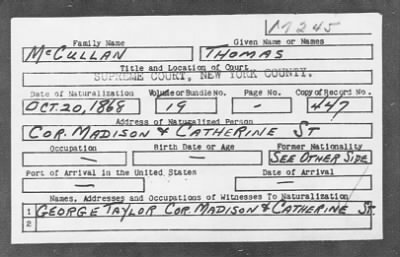 M245
Family Name Given Name or Names
McCULLAN THOMAS
Title and Location of Court
SUPREME COURT, NEW YORK COUNTY.
Date of Naturalization Volume or Bundle No. Page No. Copy of Record No.
OCT. 20, 1868 19 - 447
Address of Naturalized Person
COR. MADISON & CATHERINE ST
Occupation Birth Date or Age Former Nationality
— — SEE OTHER SIDE
Port of Arrival in the United States Date of Arrival
— —
Names, Addresses and Occupations of Witnesses To Naturalization
1 GEORGE TAYLOR COR. MADISON & CATHERINE ST.
2